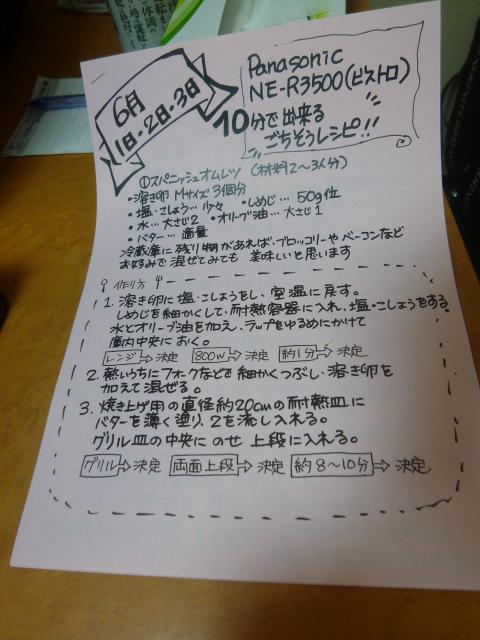 6月
1日・2日・3日
Panasonic
NE-R3500(ビストロ)
10分で出来る
ごちそうレシピ!!
①スパニッシュオムレツ (材料2〜3人分)
・溶き卵 Mサイズ 3個分
・塩・こしょう… 少々 ・しめじ… 50g位
・水… 大さじ2 ・オリーブ油… 大さじ1
・バター… 適量
冷蔵庫に残り物があれば、ブロッコリーやベーコンなど
お好みで混ぜてみても 美味しいと思います
作り方
1. 溶き卵に塩・こしょうをし、室温に戻す。
しめじを細かくして、耐熱容器に入れ、塩・こしょうをする。
水とオリーブ油を加え、ラップをゆるめにかけて
庫内中央におく。
レンジ⇨決定 800W⇨決定 約1分⇨決定
2. 熱いうちにフォークなどで細かくつぶし、溶き卵を
加えて混ぜる。
3. 焼き上げ用の直径約20cmの耐熱皿に
バターを薄く塗り、2を流し入れる。
グリル皿の中央にのせ 上段に入れる。
グリル⇨決定 両面上段⇨決定 約8〜10分⇨決定